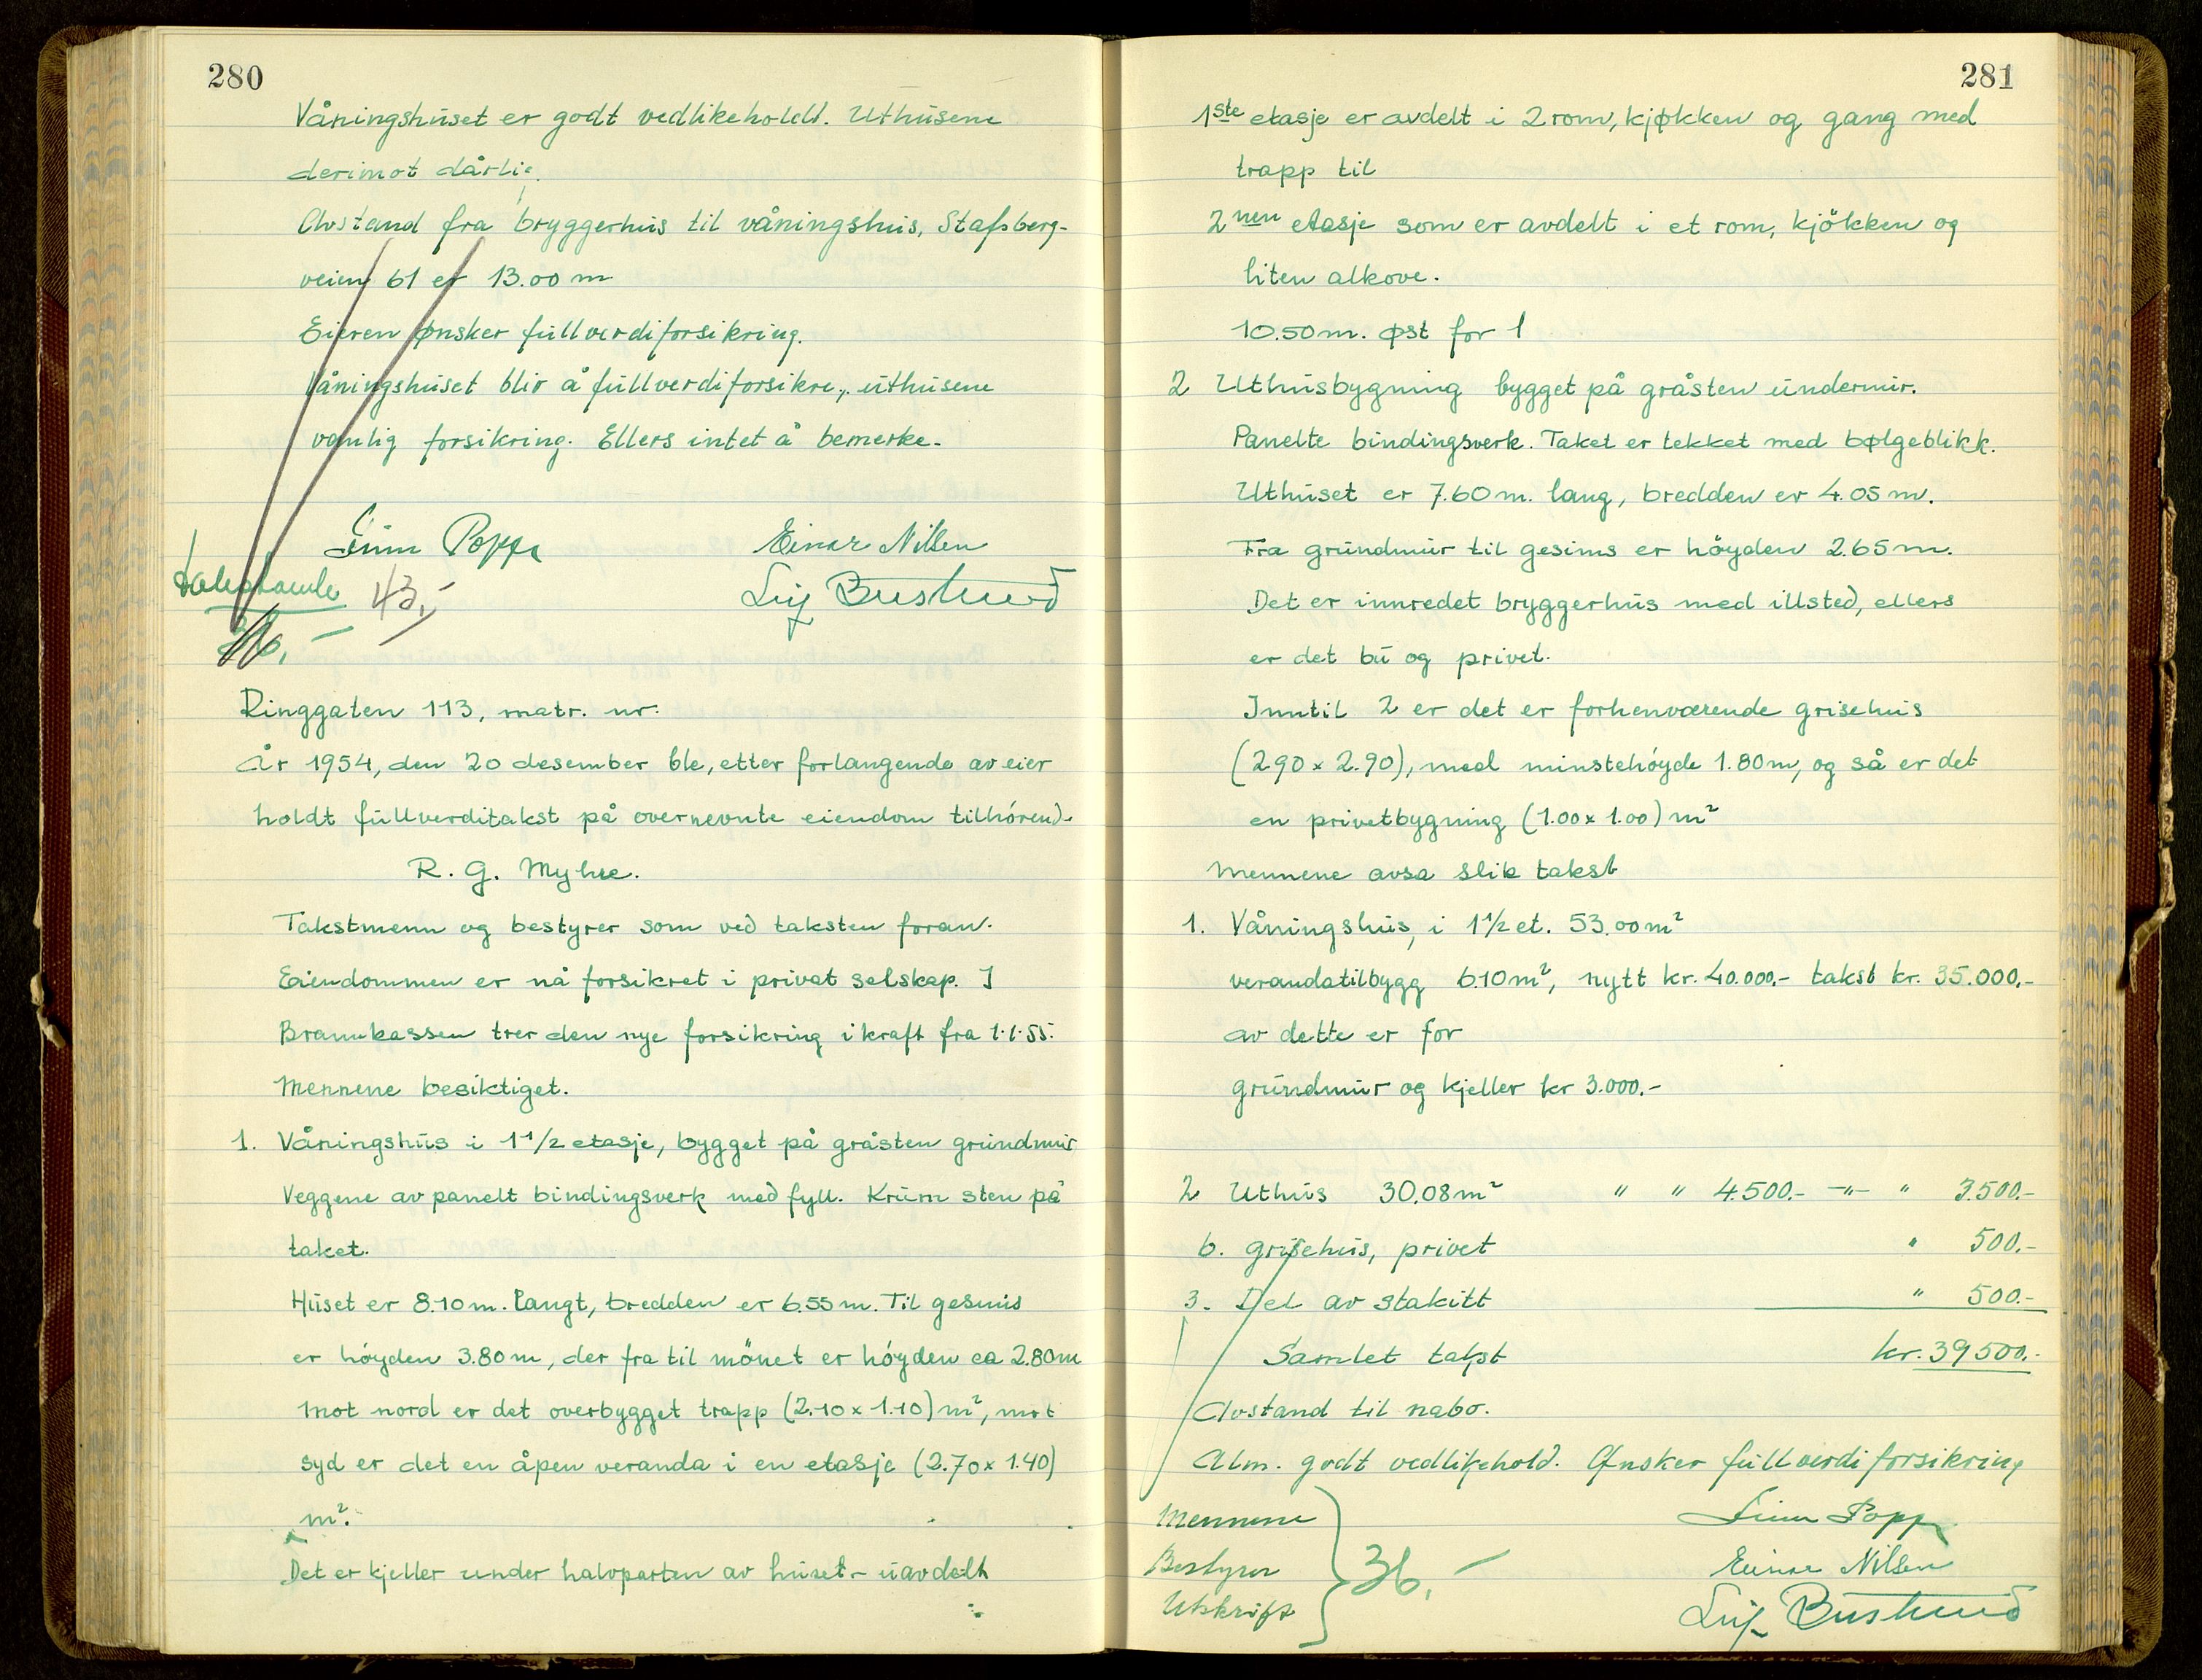 280
Våningshuset er godt vedlikeholdt. Uthusene
derimot dårlig.
Avstand fra bryggerhus til våningshus, Stafsberg-
veien 61 er 13.00 m
Eieren ønsker fullverdiforsikring.
Våningshuset blir å fullverdiforsikre, uthusene
vanlig forsikring. Ellers intet å bemerke.
Finn Popp
Einar Nilsen
43,-
Leif Bustund
36,-
Ringgaten 113, matr. nr.
År 1954, den 20 desember ble, etter forlangende av eier
holdt fullverditakst på overnevnte eiendom tilhørende
R. G. Myhre.
Takstmenn og bestyrer som ved taksten foran.
Eiendommen er nå forsikret i privat selskap. I
Brannkassen trer den nye forsikring i kraft fra 1.1.55.
Mennene besiktiget.
1. Våningshus i 1 1/2 etasje, bygget på gråsten grundmur
Veggene av panelt bindingsverk med fyll. Krum sten på
taket.
Huset er 8.10 m. langt, bredden er 6.55 m. Til gesims
er høyden 3.80 m, der fra til mønet er høyden ca 2.80 m
Mot nord er det overbygget trapp (2.10 x 1.10) m², mot
syd er det en åpen veranda i en etasje (2.70 x 1.40)
m².
Det er kjeller under halvparten av huset - uavdelt
281
1ste etasje er avdelt i 2 rom, kjøkken og gang med
trapp til
2nen etasje som er avdelt i et rom, kjøkken og
liten alkove.
10.50 m. øst for 1
2 Uthusbygning bygget på gråsten undermur.
Panelte bindingsverk. Taket er tekket med bølgeblikk.
Uthuset er 7.60 m. lang, bredden er 4.05 m.
Fra grundmur til gesims er høyden 2.65 m.
Det er innredet bryggerhus med illsted, ellers
er det bu og privet.
Inntil 2 er det er forhenværende grisehus
(2.90 x 2.90), med minstehøyde 1.80 m, og så er det
en privetbygning (1.00 x 1.00) m²
Mennene avsa slik takst
1. Våningshus, i 1 1/2 et. 53.00 m²
verandatilbygg 6.10 m², nytt kr. 40.000.- takst kr. 35.000.-
av dette er for
grundmur og kjeller kr 3.000.-
2 Uthus 30.08 m² " " 4.500.- -"- " 3.500.-
b. grisehus, privet " 500.-
3. Del av stakitt " 500.-
Samlet takst kr. 39500.-
Avstand til nabo.
Alm. godt vedlikehold. Ønsker fullverdiforsikring
Mennene
Finn Popp
Bestyrer
36,-
Einar Nilsen
Utskrift
Leif Bustund